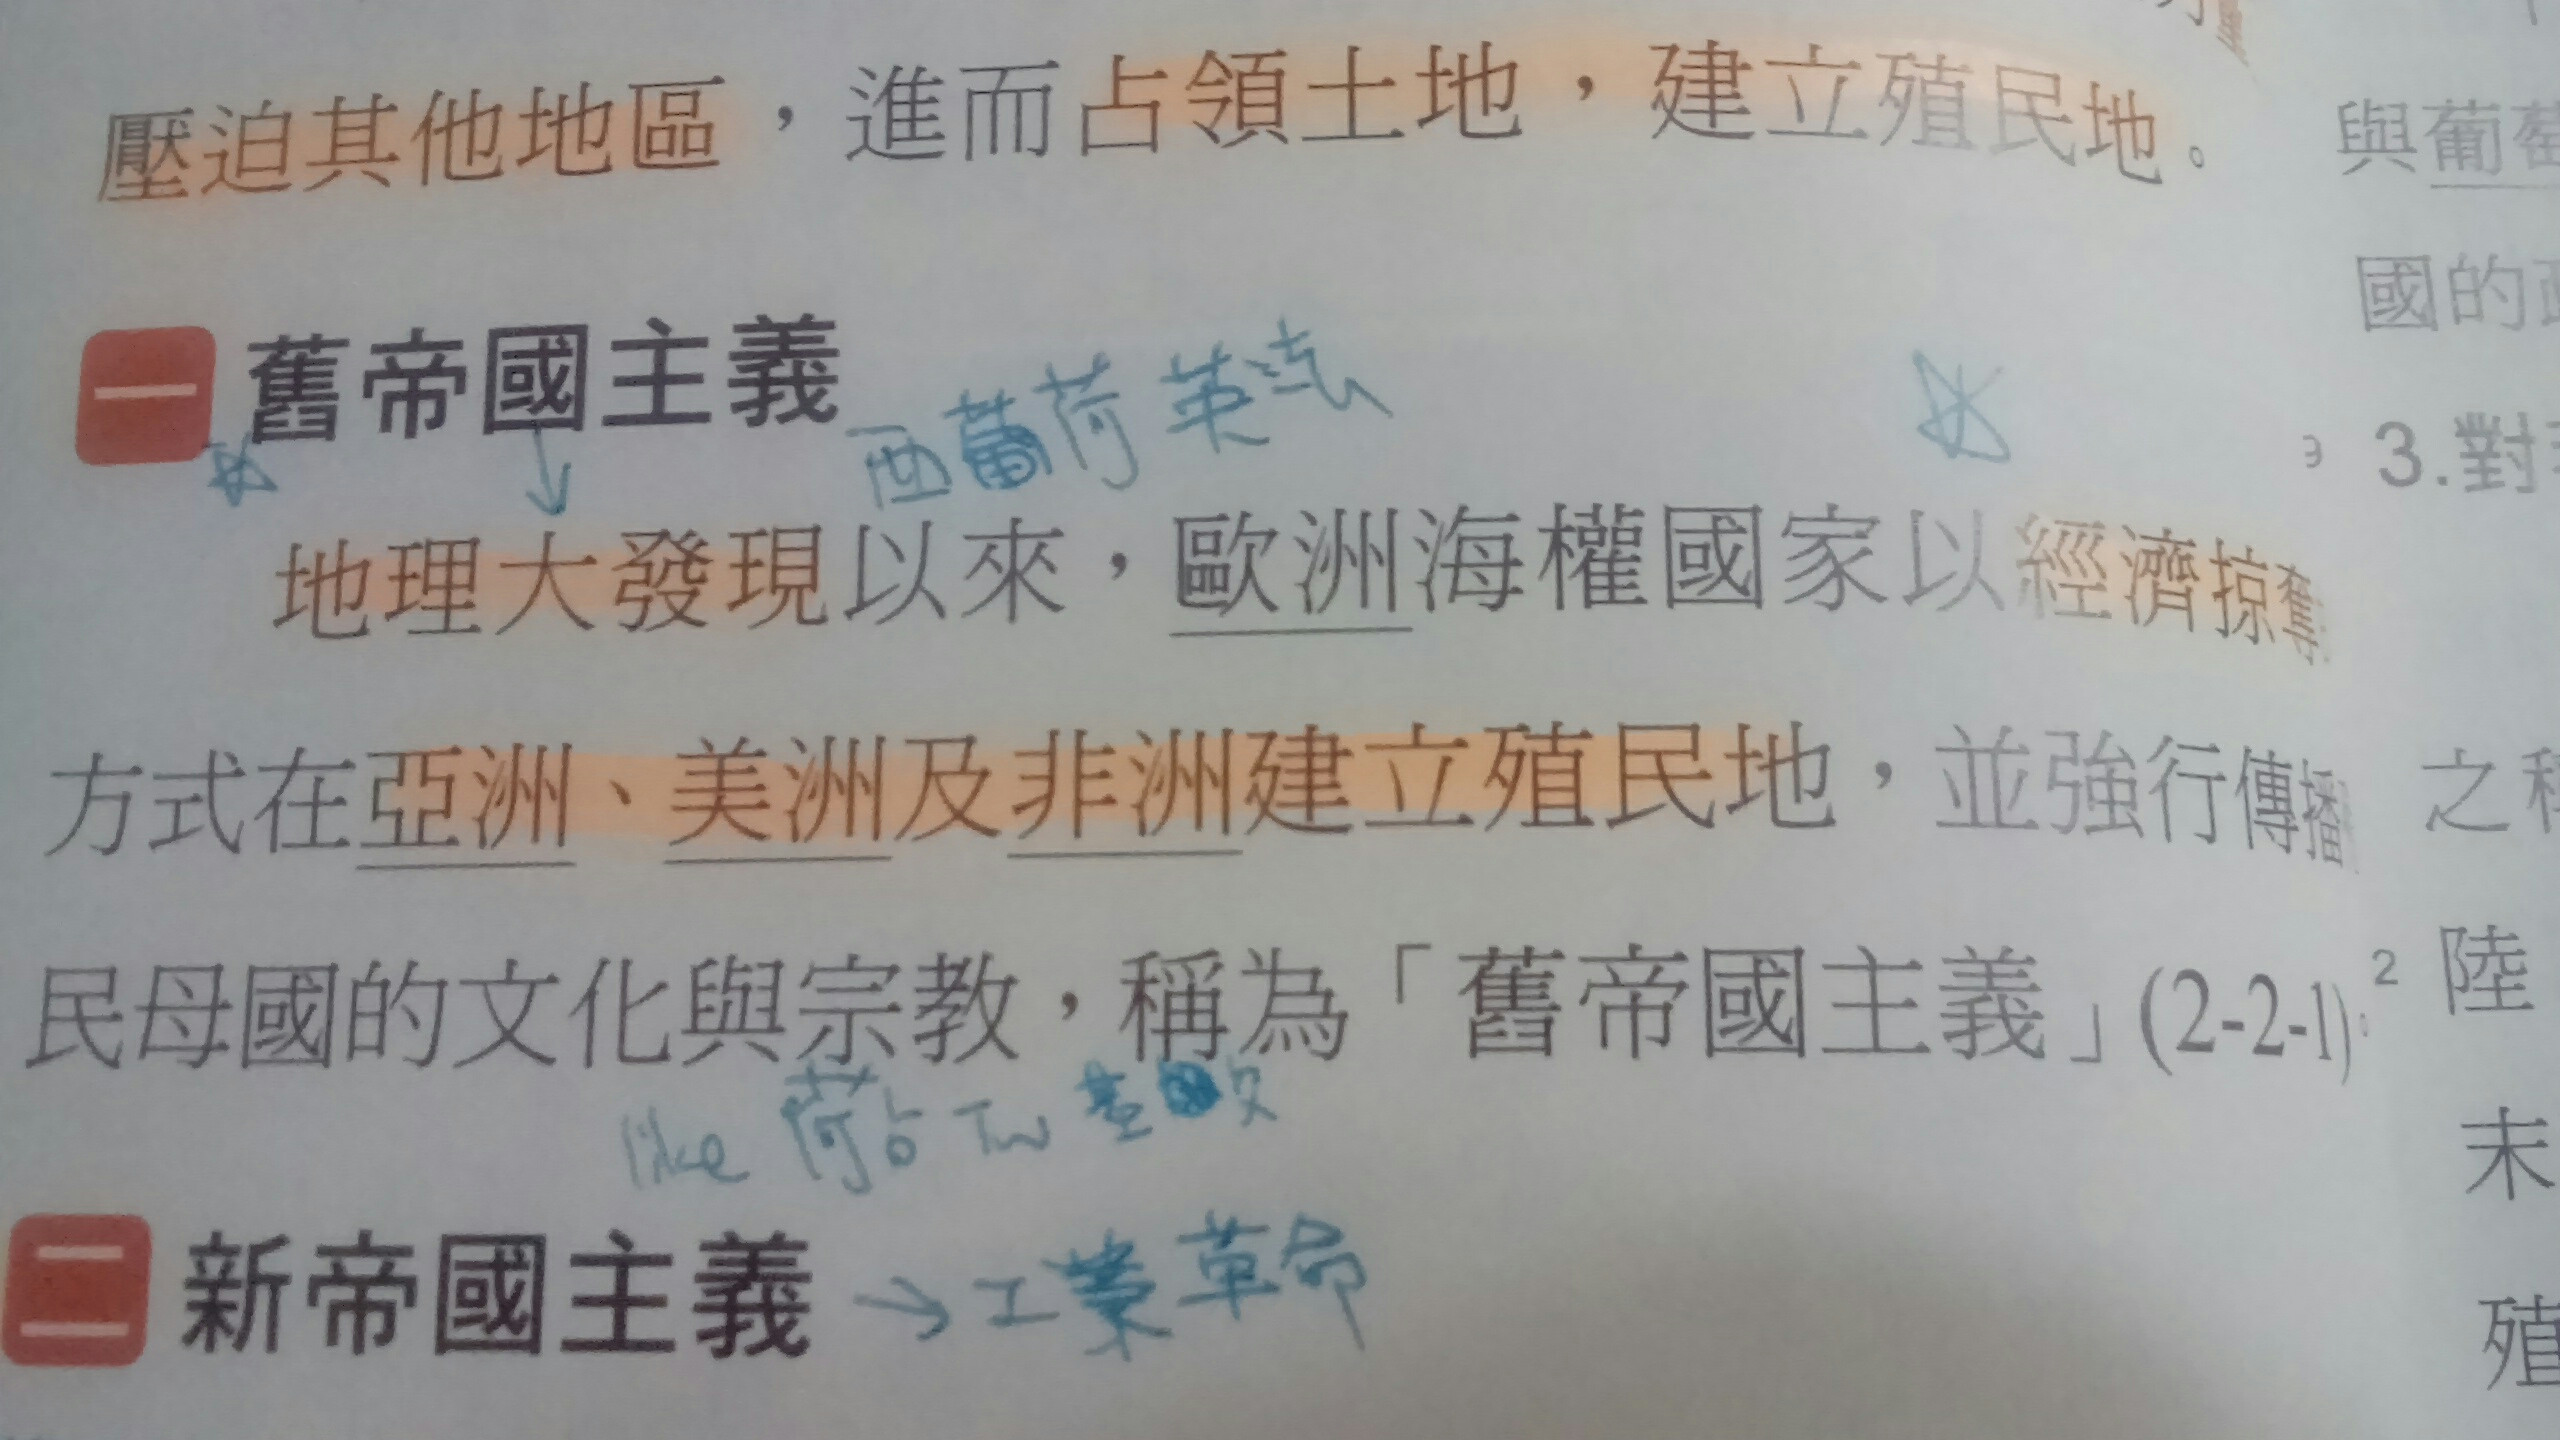 壓迫其他地區，進而占領土地，建立殖民地。
一 舊帝國主義
西葡荷英法
地理大發現以來，歐洲海權國家以經濟掠奪
方式在亞洲、美洲及非洲建立殖民地，並強行傳播
民母國的文化與宗教，稱為「舊帝國主義」(2-2-1)。
like 荷占 TW
二 新帝國主義 → 工業革命
與葡萄
國的
3.對
之
2 陸
末
殖